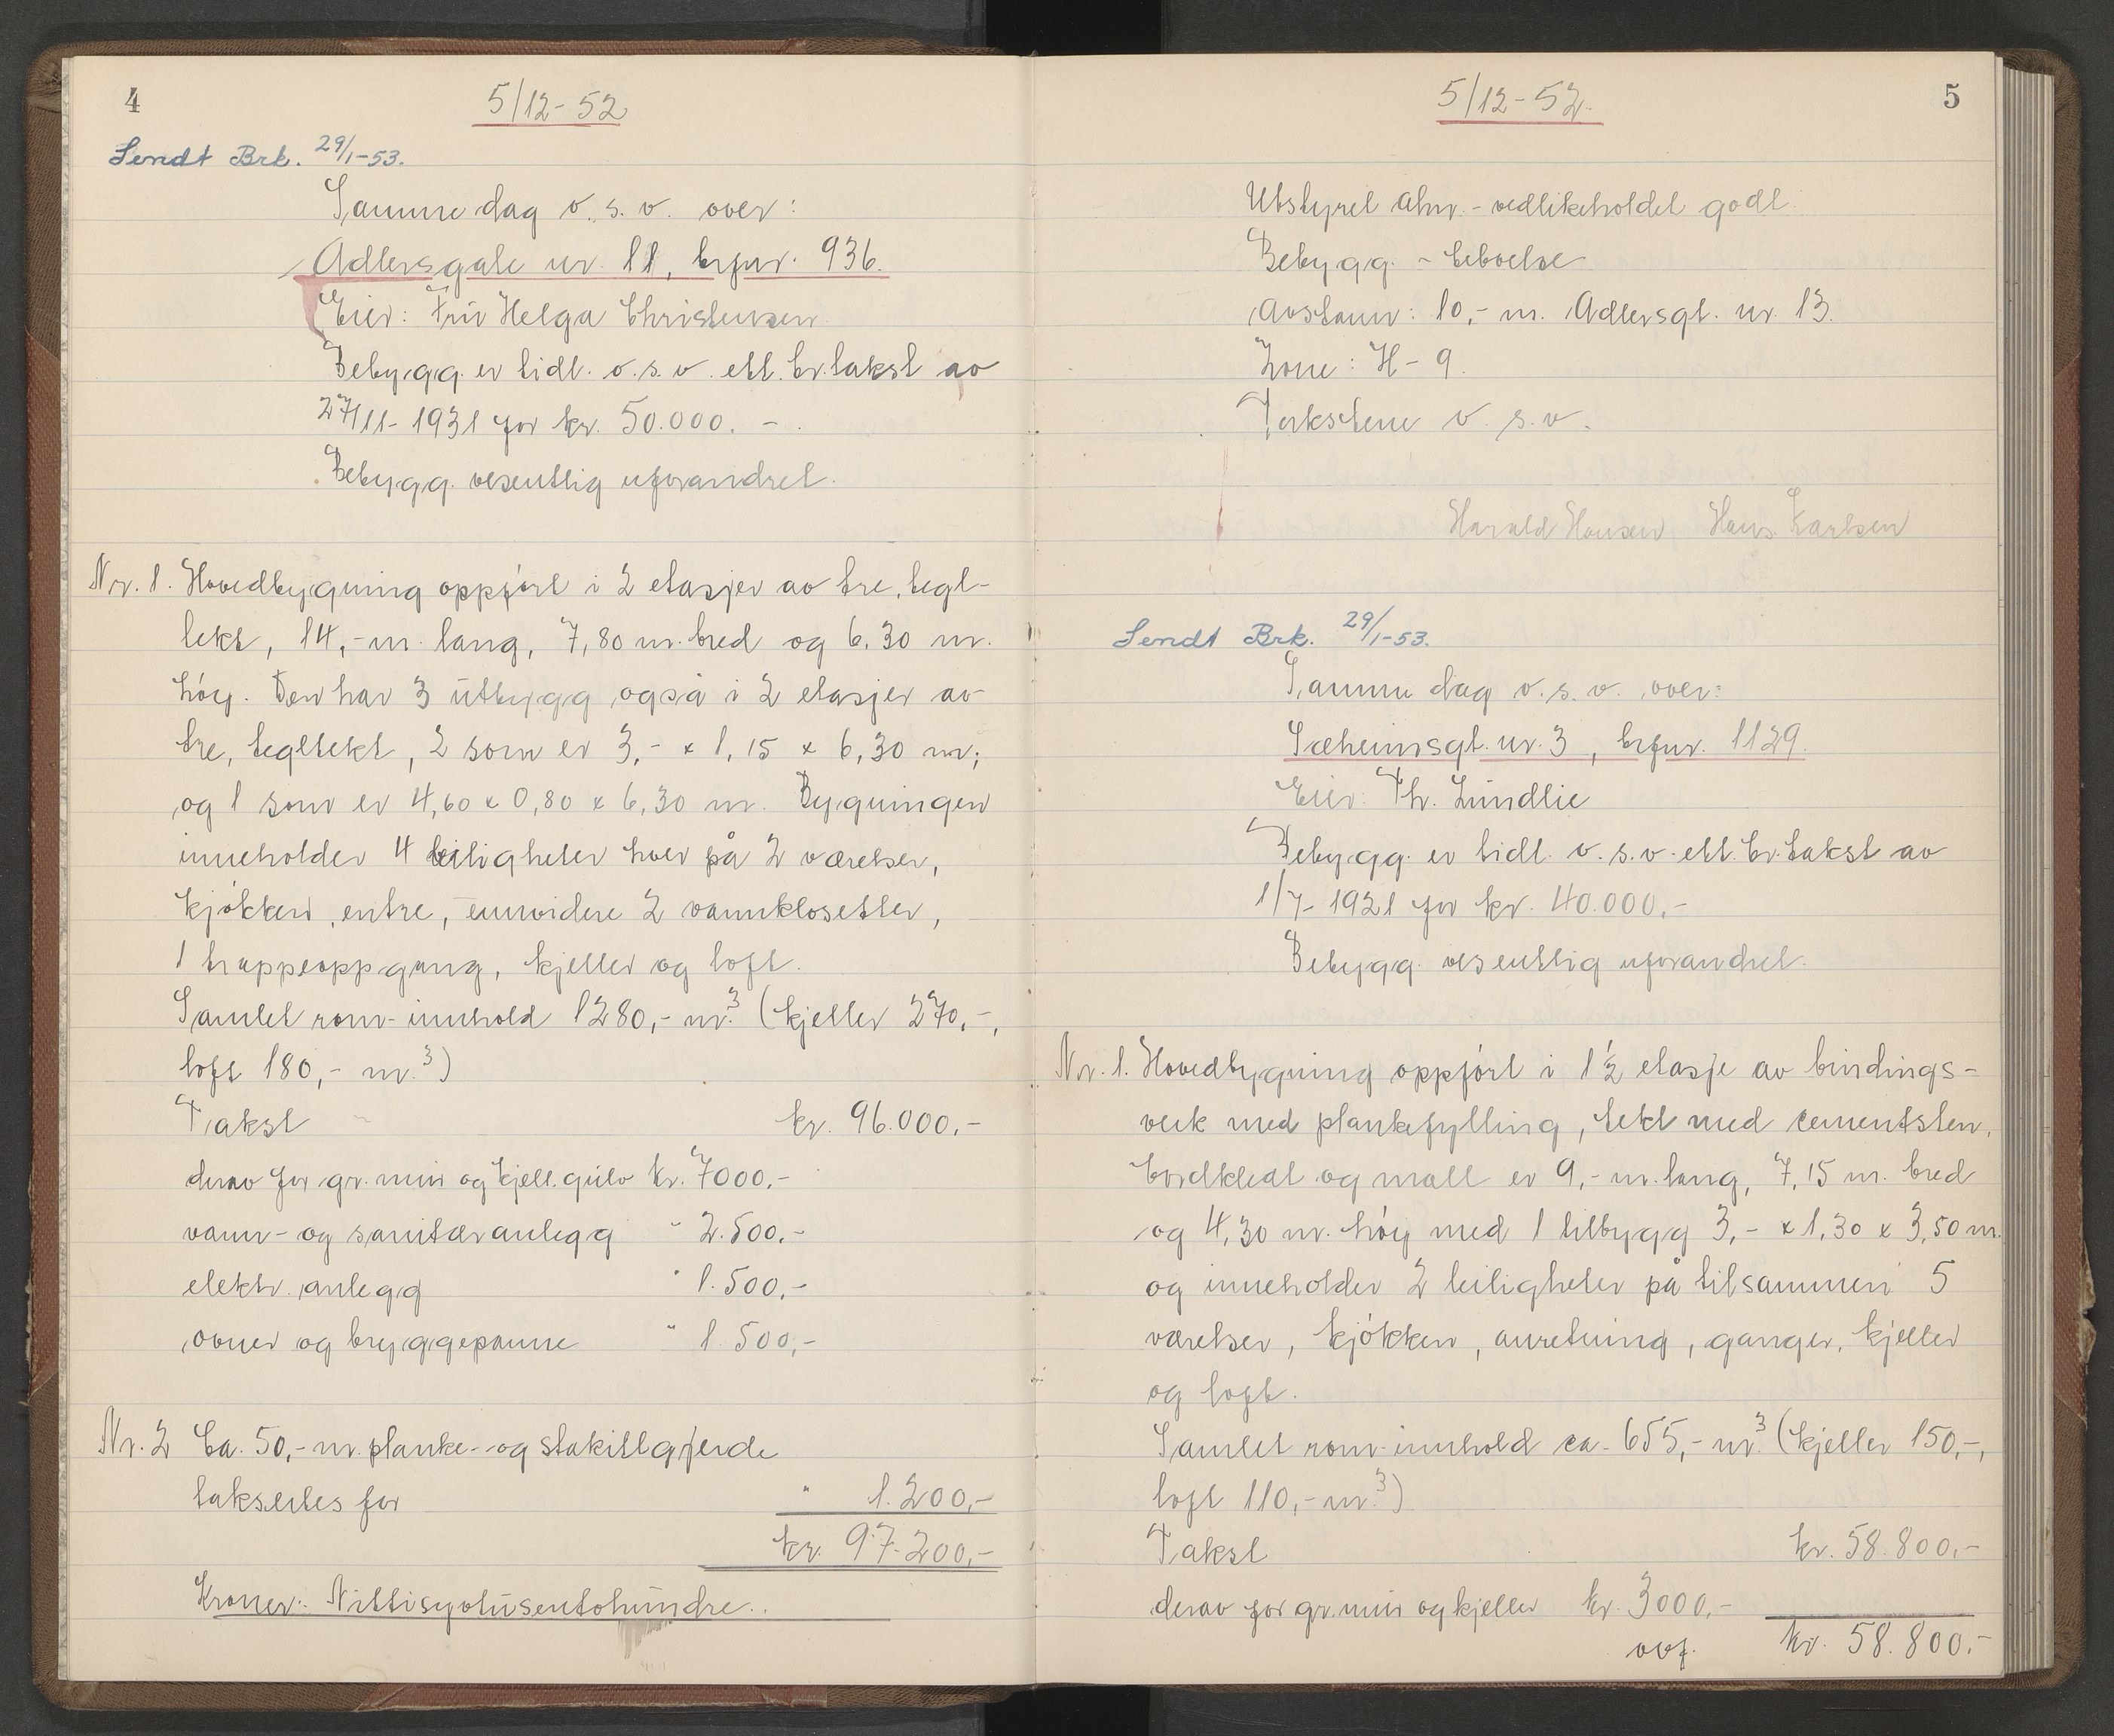 4
5/12-52
Sendt Brk. 29/1-53.
Samme dag o.s.v. over:
Adlersgate nr. 11, brfnr. 936.
Eier: Frú Helga Christensen.
Bebygg. er tidl. o.s.v. ett. br.takst av
27/11-1931 for kr. 50.000.-.
Bebygg. vesentlig uforandret.
Nr. 1. Hovedbygning oppført i 2 etasjer av tre, tegl-
tekt, 14,- m. lang, 7,80 m. bred og 6,30 m.
høy. Den har 3 útbygg også i 2 etasjer av
tre, tegltekt, 2 som er 3,- x 1,15 x 6,30 m;
og 1 som er 4,60 x 0,80 x 6,30 m. Bygningen
inneholder 4 leiligheter hver på 2 værelser,
kjøkken, entre, ennvidere 2 vannklosetter,
1 trappeoppgang, kjeller og loft.
Samlet rom-innhold 1280,- m.³ (kjeller 270,-,
loft 180,- m.³)
Takst kr. 96.000,-
derav for gr.múr og kjell.gúlv kr. 7000,-
vann- og sanitæranlegg " 2.500,-
elektr. anlegg " 1.500,-
ovner og bryggepanne " 1.500,-
Nr. 2 Ca. 50,- m. planke- og stakittgjerde
takseres for " 1.200,-
kr. 97.200,-
Kroner: Nittisyvtúsentohúndre..
5/12-52.
5
Utstyret alm. - vedlikeholdet godt.
Bebygg. - beboelse
Avstann: 10,- m. Adlersgt. nr. 13.
Zone: H-9.
Takstene o.s.v.
Harald Hansen Hans Karlsen
Sendt Brk. 29/1-53.
Samme dag o.s.v. over:
Sæheimsgt. nr. 3, brfnr. 1129.
Eier: Th. Lúndlie
Bebygg. er tidl. o.s.v. ett. br.takst av
1/7-1921 for kr. 40.000,-
Bebygg. vesentlig uforandret.
Nr. 1. Hovedbygning oppført i 1½ etasje av bindings-
verk med plankefylling, tekt med cementsten,
bordkledt og malt er 9,- m. lang, 7,15 m. bred
og 4,30 m. høy med 1 tilbygg 3,- x 1,30 x 3,50 m.
og inneholder 2 leiligheter på tilsammen 5
værelser, kjøkken, anretning, ganger, kjeller
og loft.
Samlet rom-innhold ca. 655,- m.³ (kjeller 150,-,
loft 110,- m.³)
Takst kr. 58.800,-
derav for gr.múr og kjeller kr. 3000,-
ovf. kr. 58.800,-